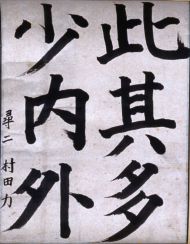 此其多
少内外
尋二 村田力